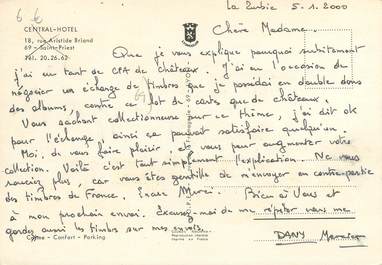 6 €
La Zubie 5-1-2000
CENTRAL-HOTEL
18, rue Aristide Briand
69 - Saint-Priest
Tél. 20.26.62
Chère Madame.
Que je vous explique pourquoi subitement
j'ai eu tant de CPM de châteaux. J'ai eu l'occasion de
négocier un échange de timbres que je possédai en double dans
des albums, contre ce lot de cartes que de châteaux.
Vous sachant collectionneuse sur ce thème, j'ai dit ok
pour l'échange, ainsi ça pouvait satisfaire quelqu'un.
Moi, de vous faire plaisir, et vous pour augmenter votre
collection. Voilà c'est tant simplement l'explication. Ne vous
souciez plus, car vous êtes gentille de m'envoyer en contre-partie
des timbres de France. Encore Merci. Bien à Vous et
à mon prochain envoi. Excusez-moi de me répéter vous me
gardez aussi les timbres sur mes envois.
Calme - Confort - Parking
Reproduction interdite
Imprimé en France
DANY